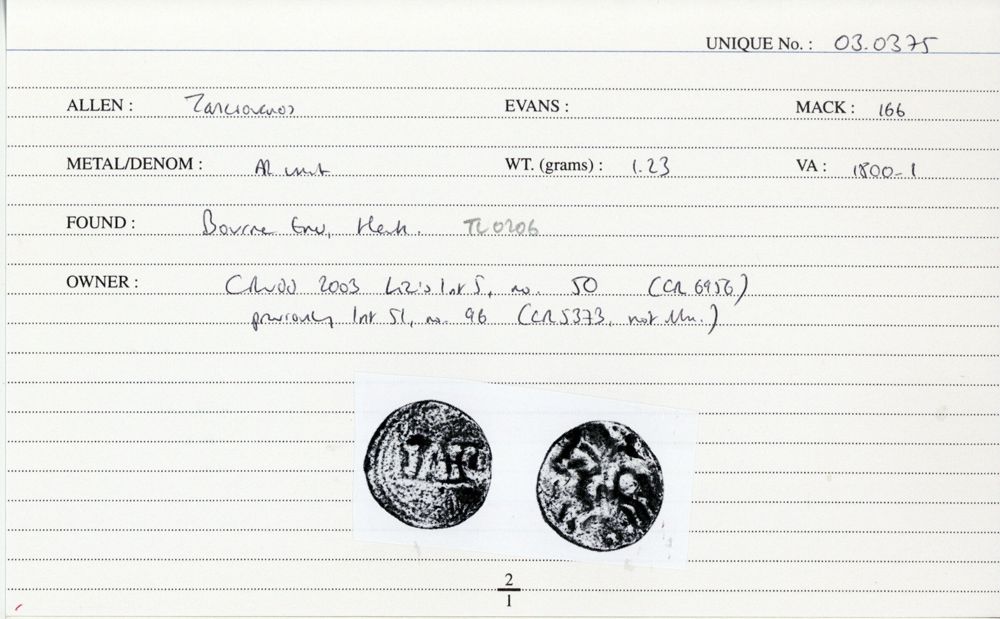 UNIQUE No. : 03.0375
ALLEN : Tasciovanos EVANS : MACK : 166
METAL/DENOM : AR unit WT. (grams) : 1.23 VA : 1800-1
FOUND : Bourne End, Herts. TL0206
OWNER : CRWDD 2003 Liz's List 5, no. 50 (CR 6956)
previously List 51, no. 96 (CR 5373, not illus.)
TASC
2
1